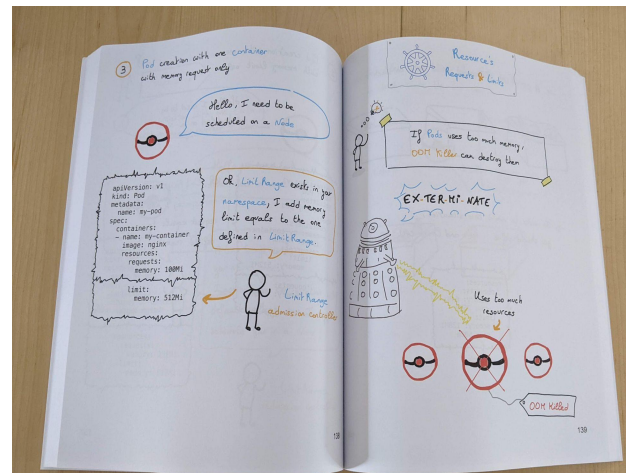 3 Pod creation with one container
with memory request only
Hello, I need to be
scheduled on a Node
apiVersion: v1
kind: Pod
metadata:
name: my-pod
spec:
containers:
- name: my-container
image: nginx
resources:
requests:
memory: 100Mi
limit:
memory: 512Mi
Ok, Limit Range exists in your
namespace, I add memory
limit equals to the one
defined in LimitRange.
LimitRange
admission controller
138
Resource's
Requests & Limits
If Pods uses too much memory,
OOM Killer can destroy them
EX-TER-MI-NATE
Uses too much
resources
OOM Killed
139